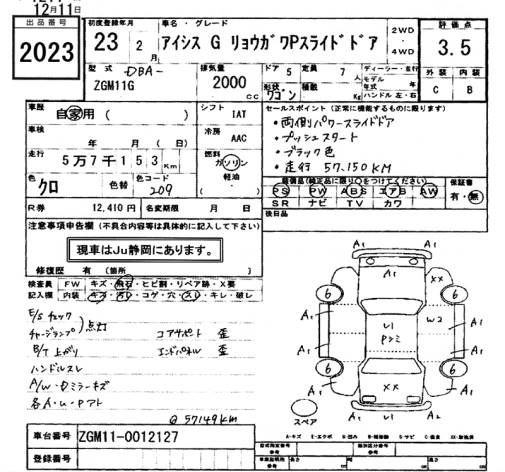 12月11日
出品番号
2023
初度登録年月
23 2月
車名・グレード
アイシス G リョウガワPスライドドア
2WD
4WD
評価点
3.5
型式 -DBA-
ZGM11G
排気量
2000 CC
ドア 5
形状 ワゴン
定員 7人
積数 Kg
ディーラー・並行
モデル
年式 年
ハンドル 左・右
外装 内装
C B
車歴
自家用 ( )
シフト
IAT
車検
年 月 ( 日)
冷房
AAC
走行
5万7千153Km
燃料
ガソリン
軽油
色
クロ
色替
色コード
209
セールスポイント (正常に機能するものに限ります)
・両側パワースライドドア
・プッシュスタート
・ブラック色
・走行 57.150KM
装備品(純正品に限り○をつけてください)
PS PW ABS エアB AW
SR ナビ TV カワ
保証書
有・無
R券 12,410円 名変期限 月 日
後日品
注意事項申告欄 (不具合内容等は具体的に記入して下さい)
現車はJu静岡にあります。
修復歴 有 (箇所 )
検査員 FW キズ・飛石・ヒビ割・リペア跡・X要
記入欄 内装 キズ・汚レ・コゲ・穴・スレ・キレ・破レ
E/Sチェック
チャージランプ 点灯
B/T上がり
ハンドルスレ
A/W・Dミラーキズ
各A・U・Pアト
コアサポート 歪
エンドパネル 歪
@57149km
A1
A1
A1
XX
6
6
A1
A1
U1
Pシミ
W2
A1
6
6
A1
A1
XX
U1
A2
スペア
A-キズ E-エクボ U-凹み
車台番号 ZGM11-0012127
登録番号
型式指定番号
類別区分番号
参考
長さ
幅
高さ